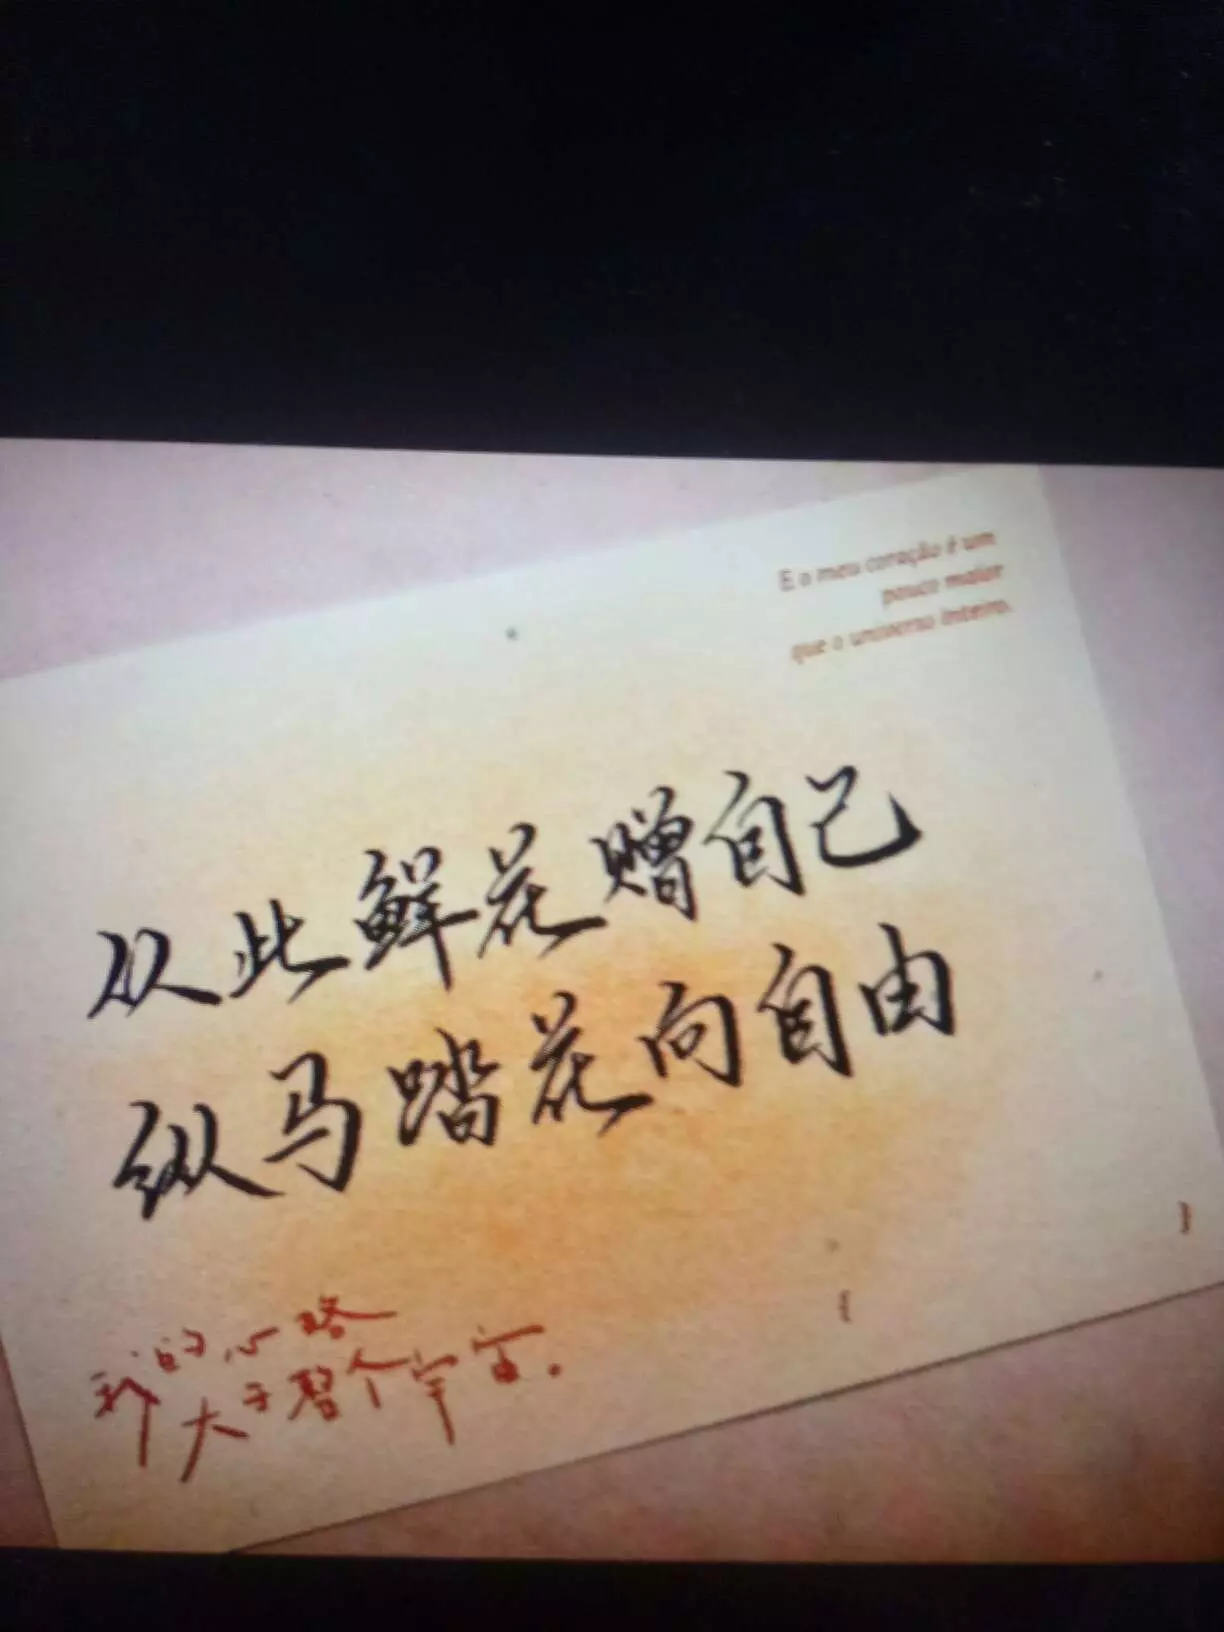 E o meu coração é um
pouco maior
que o universo inteiro.
从此鲜花赠自己
纵马踏花向自由
我的心略
大于整个宇宙。